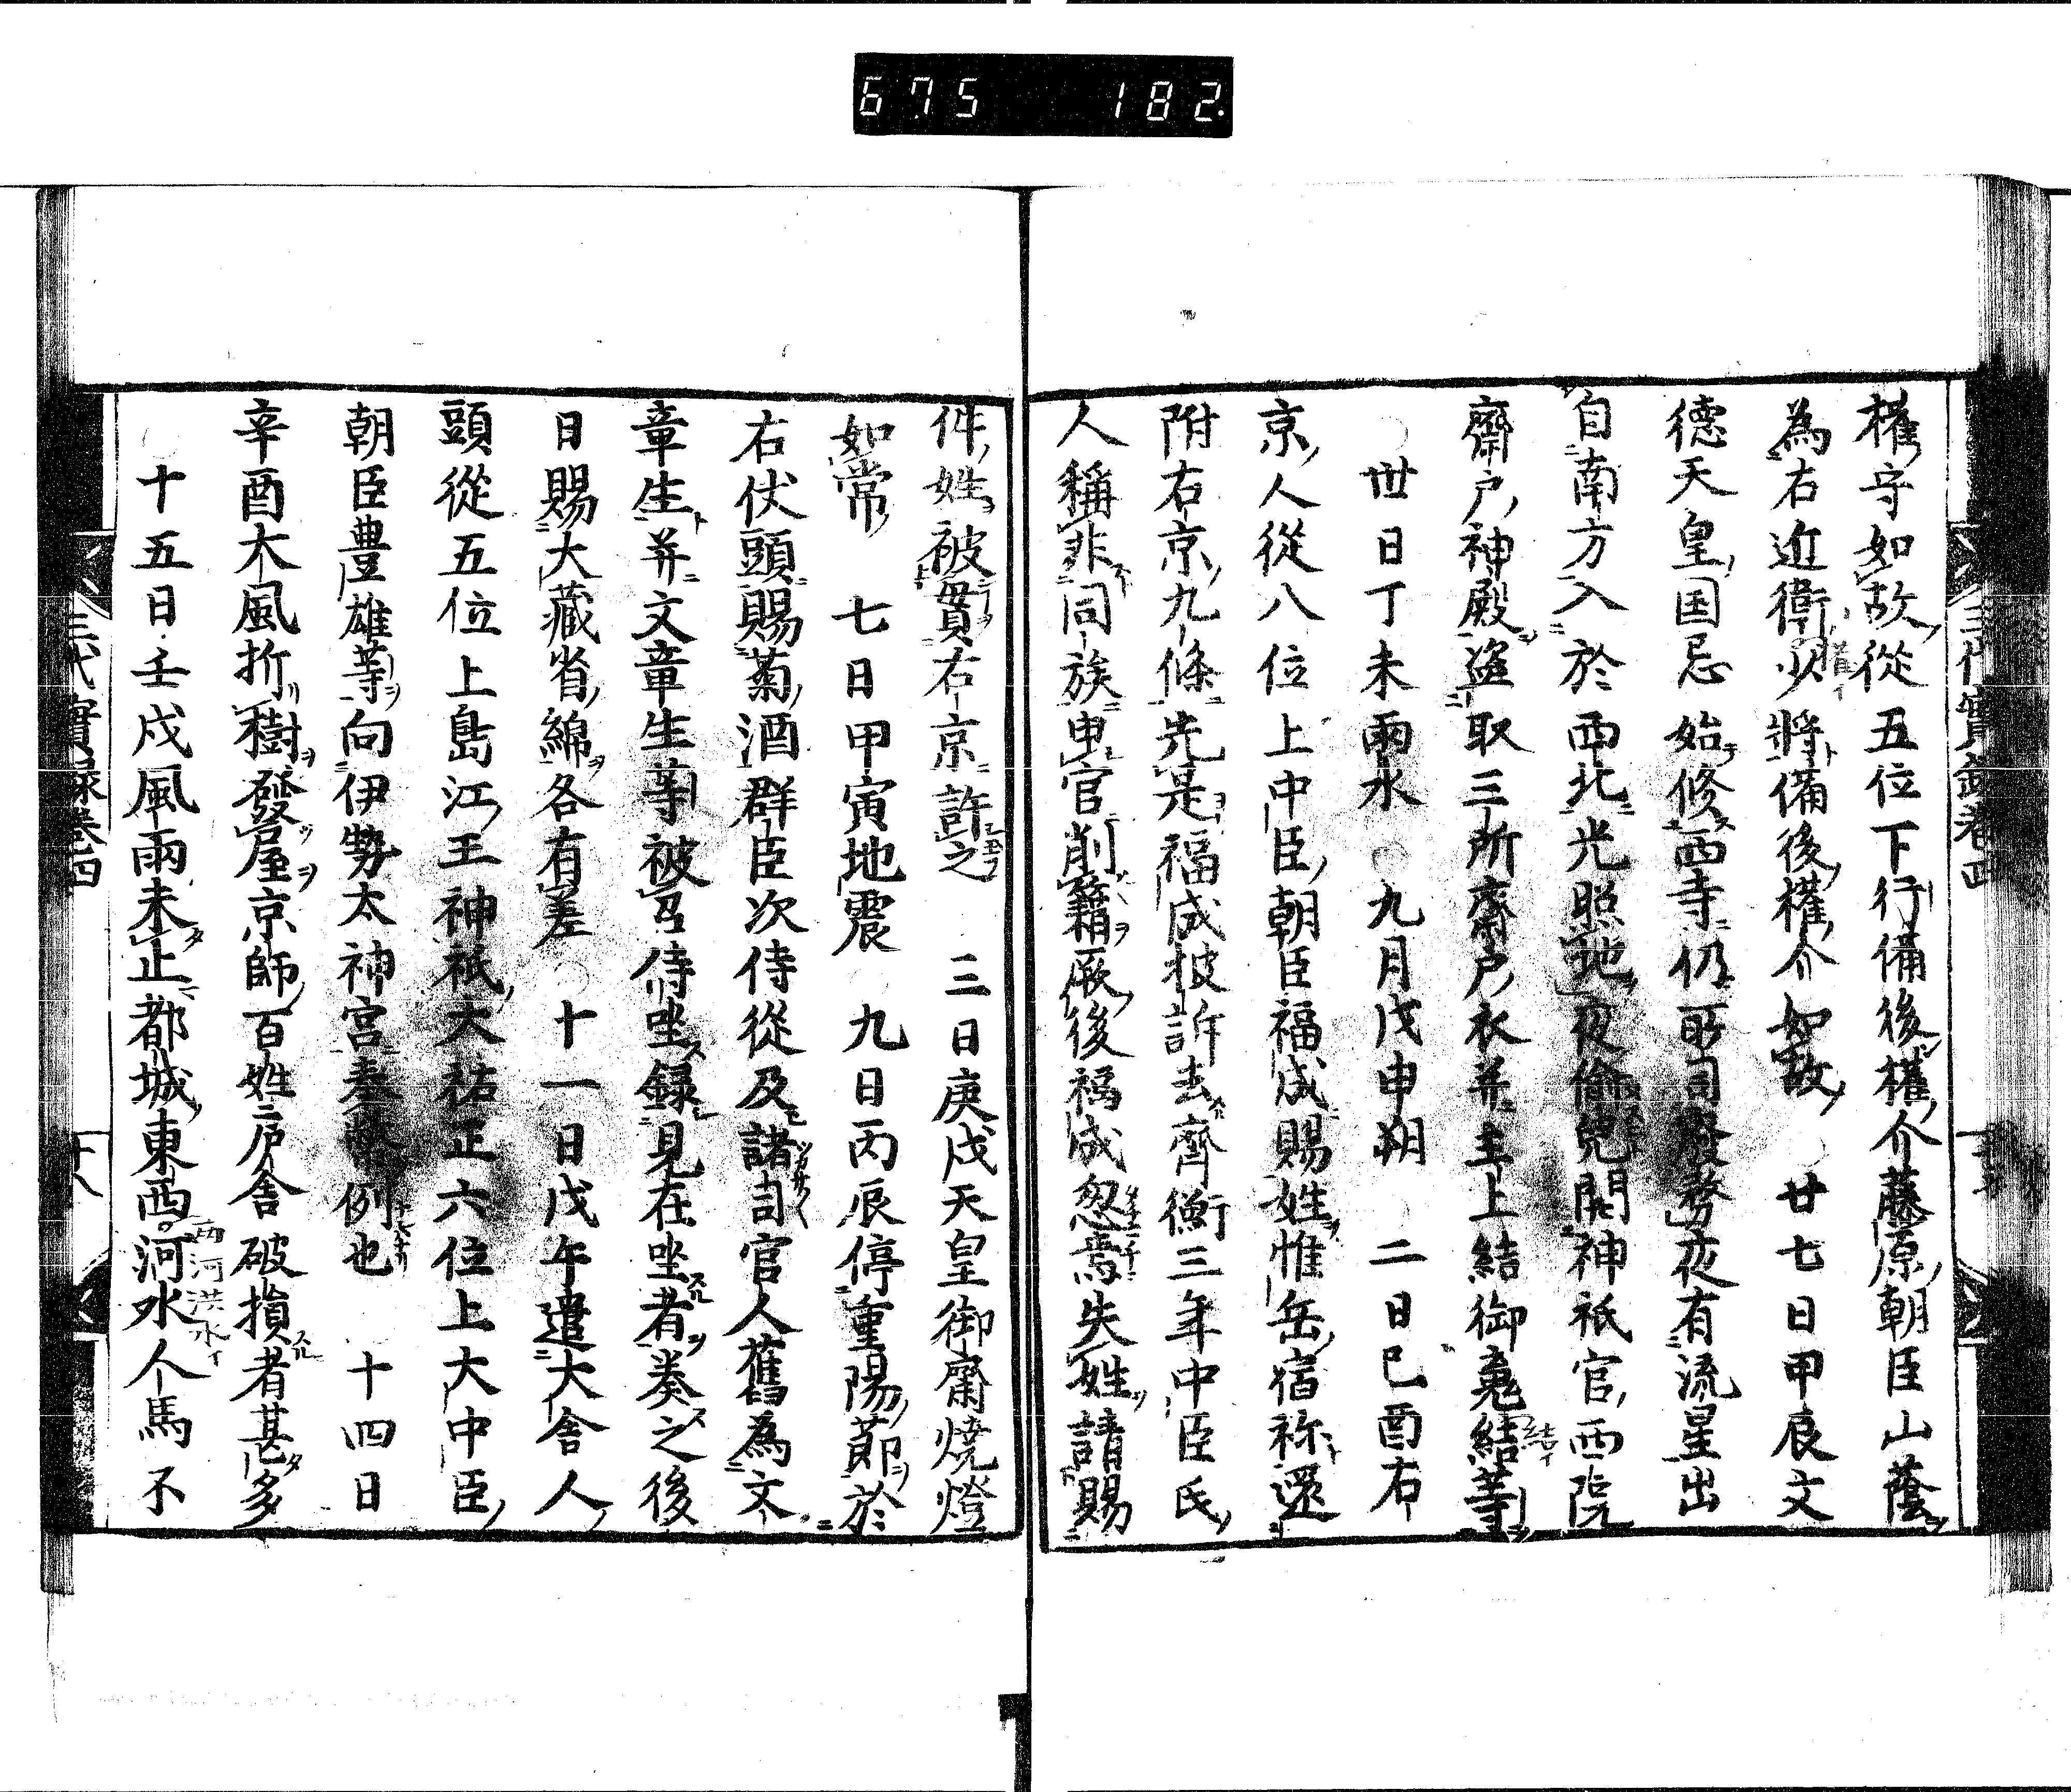 675 182
權守如故從五位下行備後權介藤原朝臣山蔭
為右近衛少將備後權介如故 廿七日甲辰文
德天皇国忌始修西寺仍所司廢務夜有流星出
自南方入於西北光照地夜偷兒開神祇官西院
齋戸神殿盜取三所齋戸衣并主上結御䰟結等
丗日丁未雨水 九月戊申朔 二日己酉右
京人從八位上中臣朝臣福成賜姓惟岳宿祢還
附右京九條先是福成披訴去齊衡三年中臣氏
人稱非同族申官削籍厥後福成忽焉失姓請賜
件姓被貫右京許之 三日庚戌天皇御齋燒燈
如常 七日甲寅地震 九日丙辰停重陽莭於
右仗頭賜菊酒群臣次侍從及諸司官人舊為文
章生并文章生等被召侍坐録見在坐者奏之後
日賜大藏省綿各有差 十一日戊午遣大舍人
頭從五位上島江王神祇大祐正六位上大中臣
朝臣豊雄等向伊勢太神宮奉幣例也 十四日
辛酉大風折樹發屋京師百姓庐舍破損者甚多
十五日壬戌風雨未止都城東西河水人馬不
西河洪水イ
三代實録卷四 十八